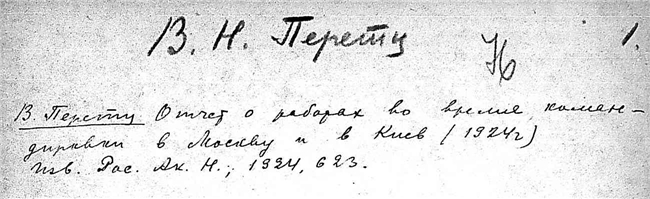 В. Н. Перетц 1.
В. Перетц Отчет о работах во время коман-
дировки в Москву и в Киев (1924г)
Изв. Рос. Ак. Н., 1924, 623.